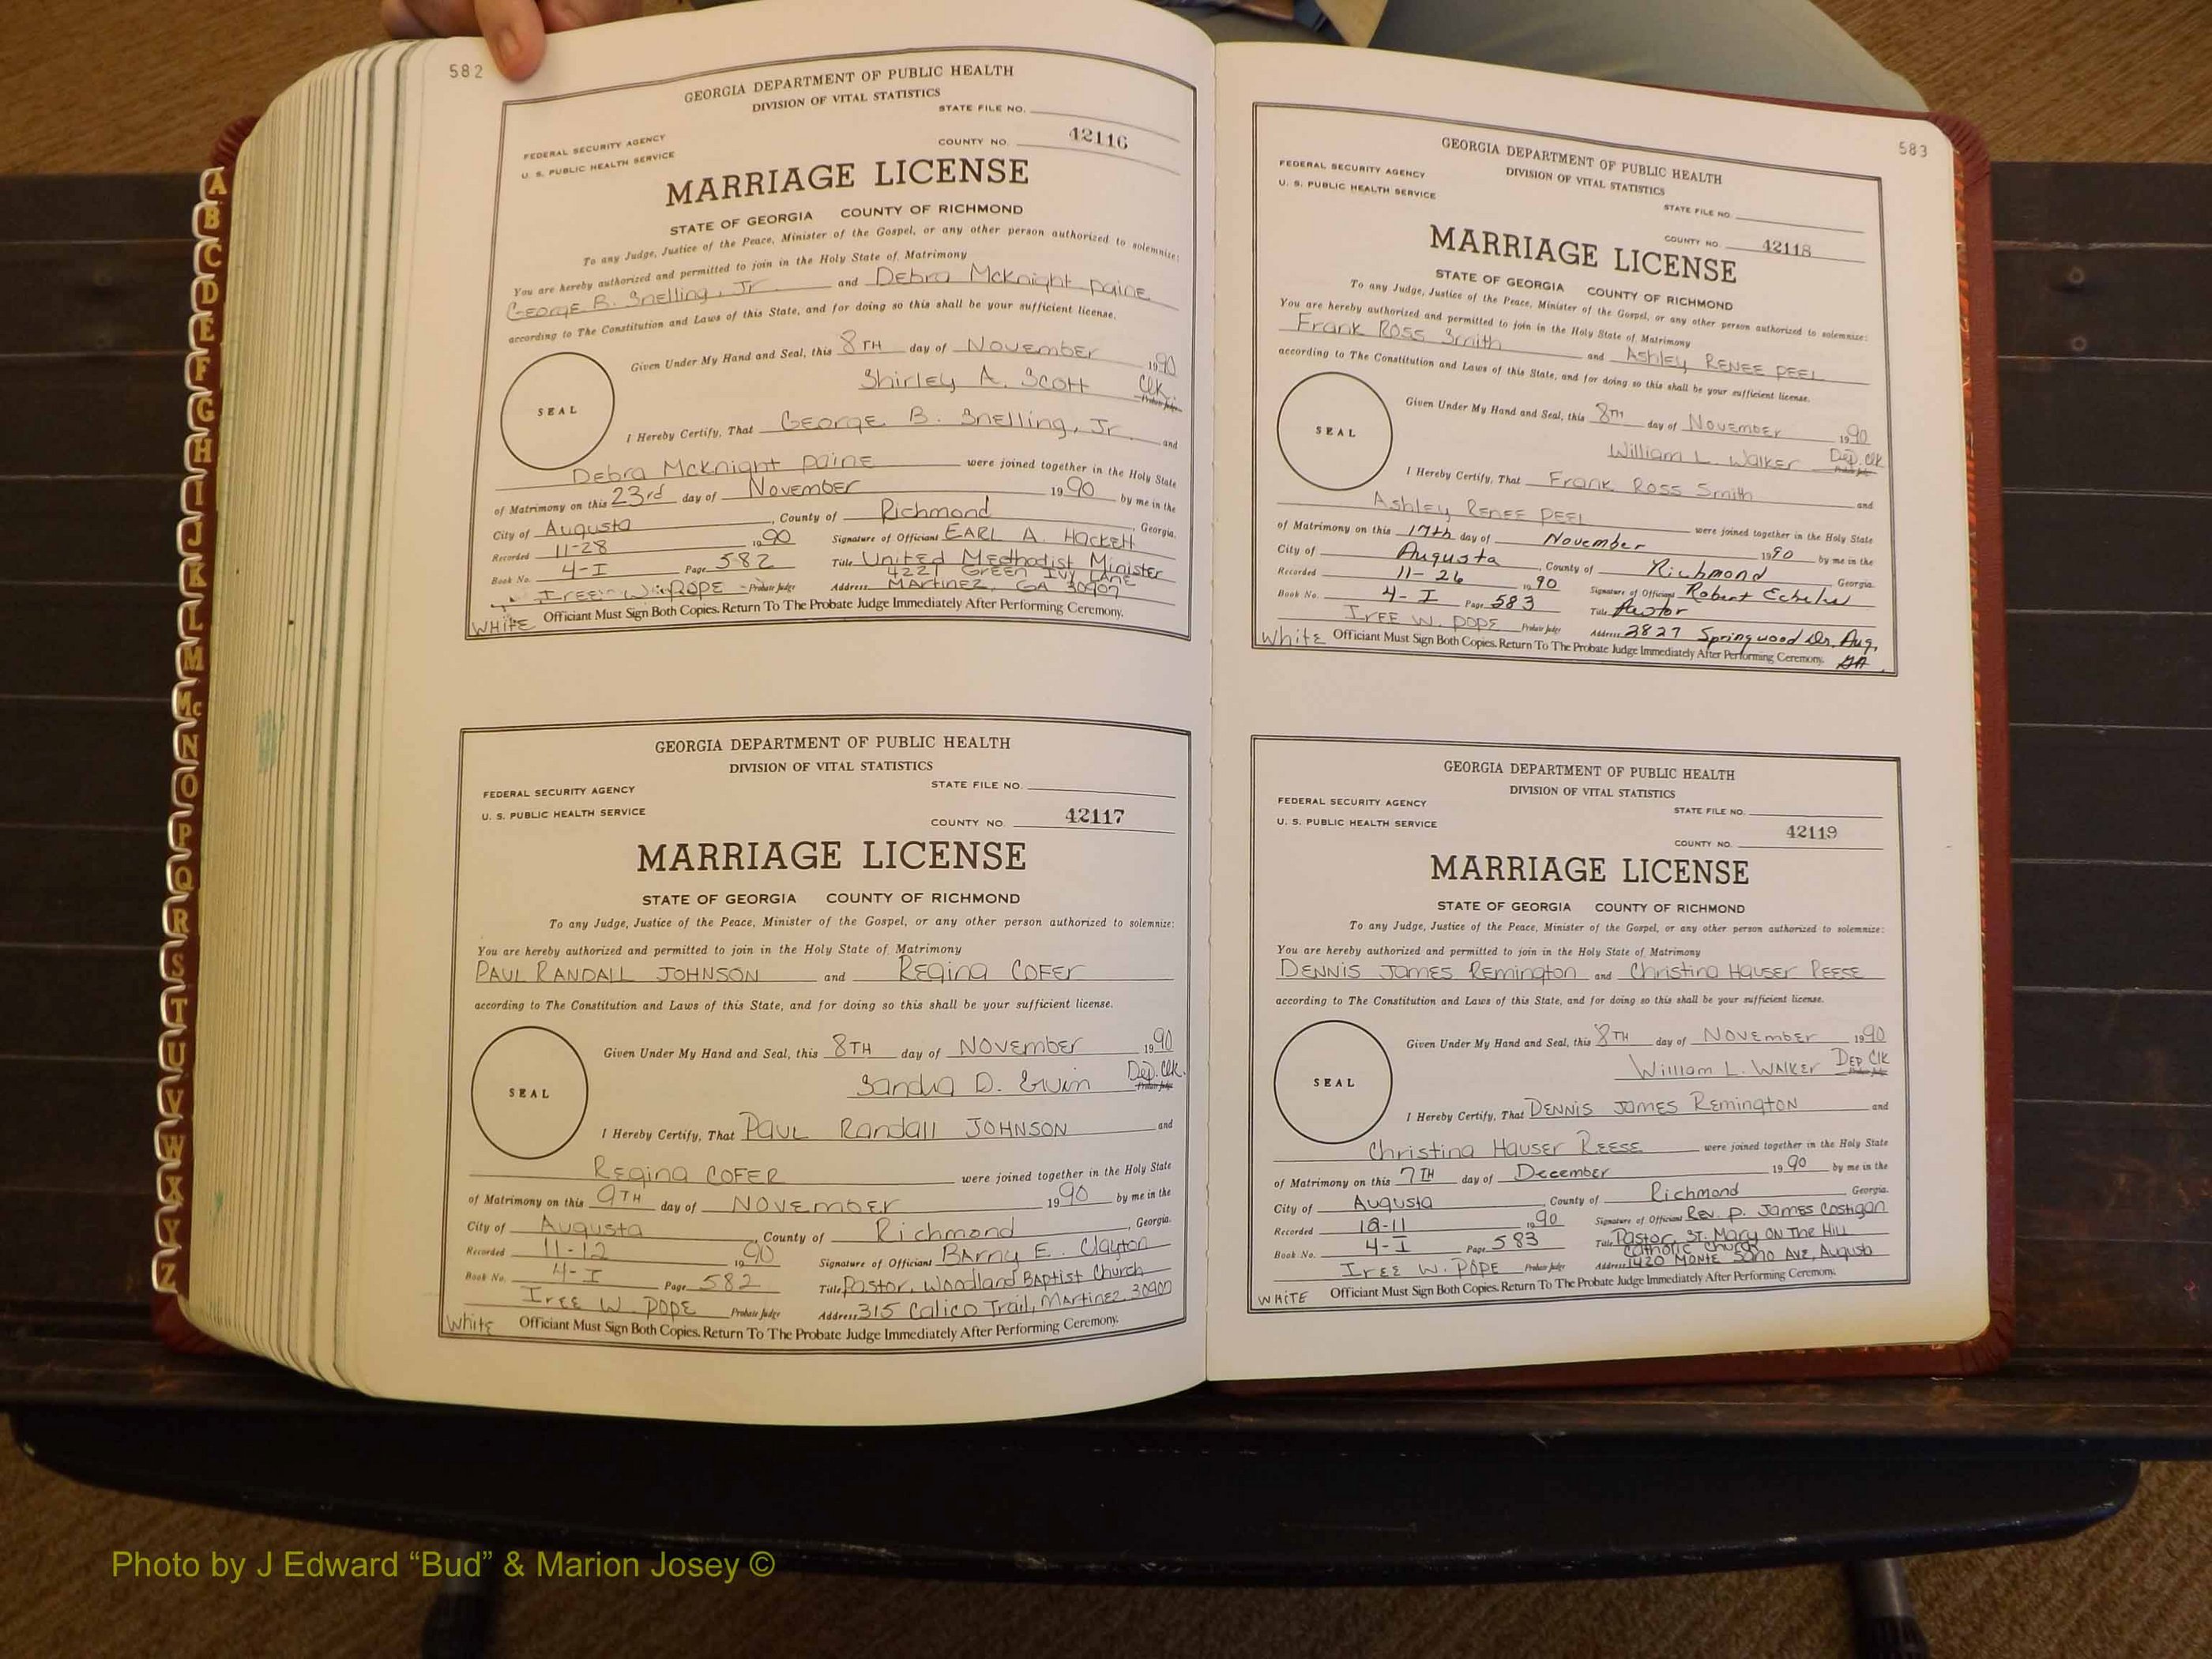 582
GEORGIA DEPARTMENT OF PUBLIC HEALTH
DIVISION OF VITAL STATISTICS
STATE FILE NO.
FEDERAL SECURITY AGENCY
U. S. PUBLIC HEALTH SERVICE
COUNTY NO. 42116
MARRIAGE LICENSE
STATE OF GEORGIA COUNTY OF RICHMOND
To any Judge, Justice of the Peace, Minister of the Gospel, or any other person authorized to solemnize:
You are hereby authorized and permitted to join in the Holy State of Matrimony
George B. Snelling, Jr. and Debra McKnight Paine
according to The Constitution and Laws of this State, and for doing so this shall be your sufficient license.
Given Under My Hand and Seal, this 8TH day of November 1990
Shirley A. Scott Clk.
Probate Judge
SEAL
I Hereby Certify, That George B. Snelling, Jr. and
Debra McKnight Paine were joined together in the Holy State
of Matrimony on this 23rd day of November 1990 by me in the
City of Augusta, County of Richmond, Georgia.
Recorded 11-28 1990 Signature of Officiant EARL A. Hackett
Book No. 4-I Page 582 Title United Medthodist Minister
4221 Green Ivy Lane
Iree W. Pope Probate Judge Address Martinez, GA 30907
WHITE Officiant Must Sign Both Copies. Return To The Probate Judge Immediately After Performing Ceremony.
GEORGIA DEPARTMENT OF PUBLIC HEALTH
DIVISION OF VITAL STATISTICS
STATE FILE NO.
FEDERAL SECURITY AGENCY
U. S. PUBLIC HEALTH SERVICE
COUNTY NO. 42117
MARRIAGE LICENSE
STATE OF GEORGIA COUNTY OF RICHMOND
To any Judge, Justice of the Peace, Minister of the Gospel, or any other person authorized to solemnize:
You are hereby authorized and permitted to join in the Holy State of Matrimony
PAUL RANDALL JOHNSON and Regina COFER
according to The Constitution and Laws of this State, and for doing so this shall be your sufficient license.
Given Under My Hand and Seal, this 8TH day of November 1990
Sandra D. Ervin Dep. Clk.
Probate Judge
SEAL
I Hereby Certify, That Paul Randall JOHNSON and
Regina COFER were joined together in the Holy State
of Matrimony on this 9TH day of November 1990 by me in the
City of Augusta, County of Richmond, Georgia.
Recorded 11-12 1990 Signature of Officiant Barny E. Clayton
Book No. 4-I Page 582 Title Pastor, Woodland Baptist Church
Iree W. Pope Probate Judge Address 315 Calico Trail, Martinez, 30907
White Officiant Must Sign Both Copies. Return To The Probate Judge Immediately After Performing Ceremony.
583
GEORGIA DEPARTMENT OF PUBLIC HEALTH
DIVISION OF VITAL STATISTICS
FEDERAL SECURITY AGENCY
U. S. PUBLIC HEALTH SERVICE
STATE FILE NO.
COUNTY NO. 42118
MARRIAGE LICENSE
STATE OF GEORGIA COUNTY OF RICHMOND
To any Judge, Justice of the Peace, Minister of the Gospel, or any other person authorized to solemnize:
You are hereby authorized and permitted to join in the Holy State of Matrimony
Frank Ross Smith and Ashley Renee Peel
according to The Constitution and Laws of this State, and for doing so this shall be your sufficient license.
Given Under My Hand and Seal, this 8TH day of November 1990
William L. Walker Dep. Clk
Probate Judge
SEAL
I Hereby Certify, That Frank Ross Smith and
Ashley Renee Peel were joined together in the Holy State
of Matrimony on this 17th day of November 1990 by me in the
City of Augusta, County of Richmond, Georgia.
Recorded 11-26 1990 Signature of Officiant Robert
Book No. 4-I Page 583 Title Pastor
Iree W. Pope Probate Judge Address 2827 Springwood Dr. Aug,
GA.
White Officiant Must Sign Both Copies. Return To The Probate Judge Immediately After Performing Ceremony.
GEORGIA DEPARTMENT OF PUBLIC HEALTH
DIVISION OF VITAL STATISTICS
FEDERAL SECURITY AGENCY
U. S. PUBLIC HEALTH SERVICE
STATE FILE NO.
COUNTY NO. 42119
MARRIAGE LICENSE
STATE OF GEORGIA COUNTY OF RICHMOND
To any Judge, Justice of the Peace, Minister of the Gospel, or any other person authorized to solemnize:
You are hereby authorized and permitted to join in the Holy State of Matrimony
Dennis James Remington and Christina Hauser Reese
according to The Constitution and Laws of this State, and for doing so this shall be your sufficient license.
Given Under My Hand and Seal, this 8TH day of November 1990
William L. Walker Dep Clk
Probate Judge
SEAL
I Hereby Certify, That Dennis James Remington and
Christina Hauser Reese were joined together in the Holy State
of Matrimony on this 7TH day of December 1990 by me in the
City of Augusta, County of Richmond, Georgia.
Recorded 12-11 1990 Signature of Officiant Rev. P. James Costigan
Book No. 4-I Page 583 Title Pastor, St. Mary ON The Hill
Catholic Church
Iree W. Pope Probate Judge Address 1420 Monte Sano Ave, Augusta
WHITE Officiant Must Sign Both Copies. Return To The Probate Judge Immediately After Performing Ceremony.
A
B
C
D
E
F
G
H
I
J
K
L
M
Mc
N
O
P
Q
R
S
T
U
V
W
X
Y
Z
Photo by J Edward “Bud” & Marion Josey ©